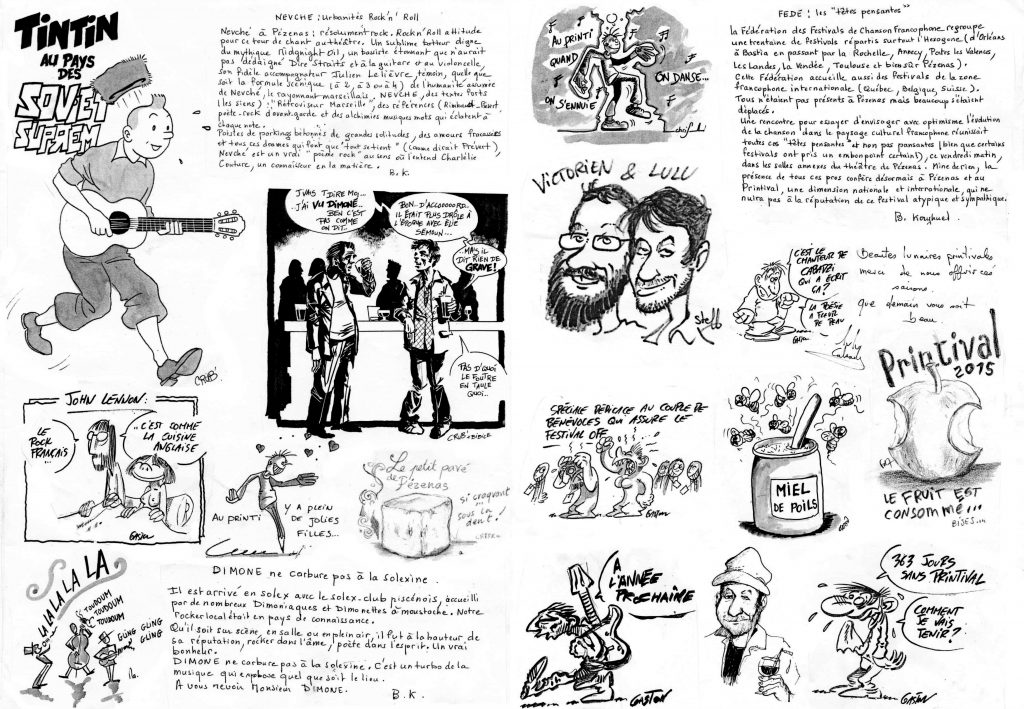 TINTIN
AU PAYS
DES
SOVIET
SUPREM
CRUB'
NEVCHE : Urbanités Rock'n' Roll
Nevché à Pézenas : résolument rock. Rock'n'Roll attitude
pour ce tour de chant au théâtre. Un sublime batteur digne
du mythique Midnight Oil, un bassiste étonnant que n'aurait
pas dédaigné Dire Straits et à la guitare et au violoncelle,
son fidèle accompagnateur Julien Lelièvre, témoin, quelle que
soit la formule scénique (à 2, à 3 ou 4) de l'humanité assumée
de Nevché, le rayonnant marseillais, NEVCHE, des textes forts
(les siens) : "Rétroviseur Marseille", des références (Rimbaud
poète-rock d'avant-garde et des alchimies musiques mots qui éclatent à
chaque note.
Poistes de parkings bitonnés de grandes solitudes, des amours fracassés
et tous ces drames qui font que "tout se tient" (comme dirait Prévert),
Nevché est un vrai "poème rock" au sens où l'entend Charlélie
Couture, un connaisseur en la matière.
B.K.
J'VAIS T'DIRE MOI...
J'AI VU DIMONE...
BEN C'EST
PAS COMME
ON DIT...
BON... D'ACCOOOORD...
IL ÉTAIT PLUS DRÔLE À
L'ÉPOQUE AVEC ELIE
SEMOUN...
MAIS IL
DIT RIEN DE
GRAVE!
PAS D'QUOI
LE FOUTRE
EN TAULE
QUOI...
CRUB'+BIBICE
JOHN LENNON :
LE
ROCK
FRANÇAIS...
...C'EST COMME
LA CUISINE
ANGLAISE
GASTON
AU PRINTI
Y A PLEIN
DE JOLIES
FILLES...
Le petit pavé
de Pézenas
si craquant
sous la
dent!
LA LA LA LA LA
TOUDOUM
TOUDOUM
TOUDOUM
GLING GLING
GLING
DIMONE ne carbure pas à la solexine.
Il est arrivé en solex avec le solex-club piscénois, accueilli
par de nombreux Dimoniaques et Dimonettes à moustache. Notre
rocker local était en pays de connaissance.
Qu'il soit sur scène, en salle ou en plein air, il fut à la hauteur de
sa réputation, rocker dans l'âme, poète dans l'esprit. Un vrai
bonheur.
DIMONE ne carbure pas à la solexine. C'est un turbo de la
musique qui explose quel que soit le lieu.
A vous revoir Monsieur DIMONE.
B.K.
AU PRINTI
QUAND
ON S'ENNUIE
ON DANSE...
VICTORIEN & LULU
Stebb
FEDE : les "têtes pensantes"
La Fédération des Festivals de Chanson Francophone regroupe
une trentaine de festivals répartis sur tout l'Hexagone (d'Orléans
à Bastia en passant par la Rochelle, Annecy, Portes les Valences,
les Landes, la Vendée, Toulouse et bien sûr Pézenas).
Cette Fédération accueille aussi des festivals de la zone
francophone internationale (Québec, Belgique, Suisse).
Tous n'étaient pas présents à Pézenas mais beaucoup s'étaient
déplacés.
Une rencontre pour essayer d'envisager avec optimisme l'évolution
de la chanson dans le paysage culturel francophone réunissait
toutes ces "têtes pensantes" et non pas pansantes (bien que certains
festivals ont pris un embonpoint certain!), ce vendredi matin,
dans les salles annexes du théâtre de Pézenas. Mine de rien, la
présence de tous ces pros confère désormais à Pézenas et au
Printival, une dimension nationale et internationale, qui ne
nuira pas à la réputation de ce festival atypique et sympathique.
B. Kayhuel
C'EST LE
CHANTEUR DE
CABADZI
QUI A ÉCRIT
ÇA?
LA POÉSIE
À FLEUR DE
PEAU
GASTON
Beautés lunaires printivales
merci de nous offrir ces
saisons.
que demain vous soit
beau.
Printival
2015
LE FRUIT EST
CONSOMMÉ...
BISES...
SPÉCIALE DÉDICACE AU COUPLE DE
BÉNÉVOLES QUI ASSURE LE
FESTIVAL OFF
GASTON
MIEL
DE POILS
À
L'ANNÉE
PROCHAINE
GASTON
363 JOURS
SANS PRINTIVAL
COMMENT
JE VAIS
TENIR?
GASTON